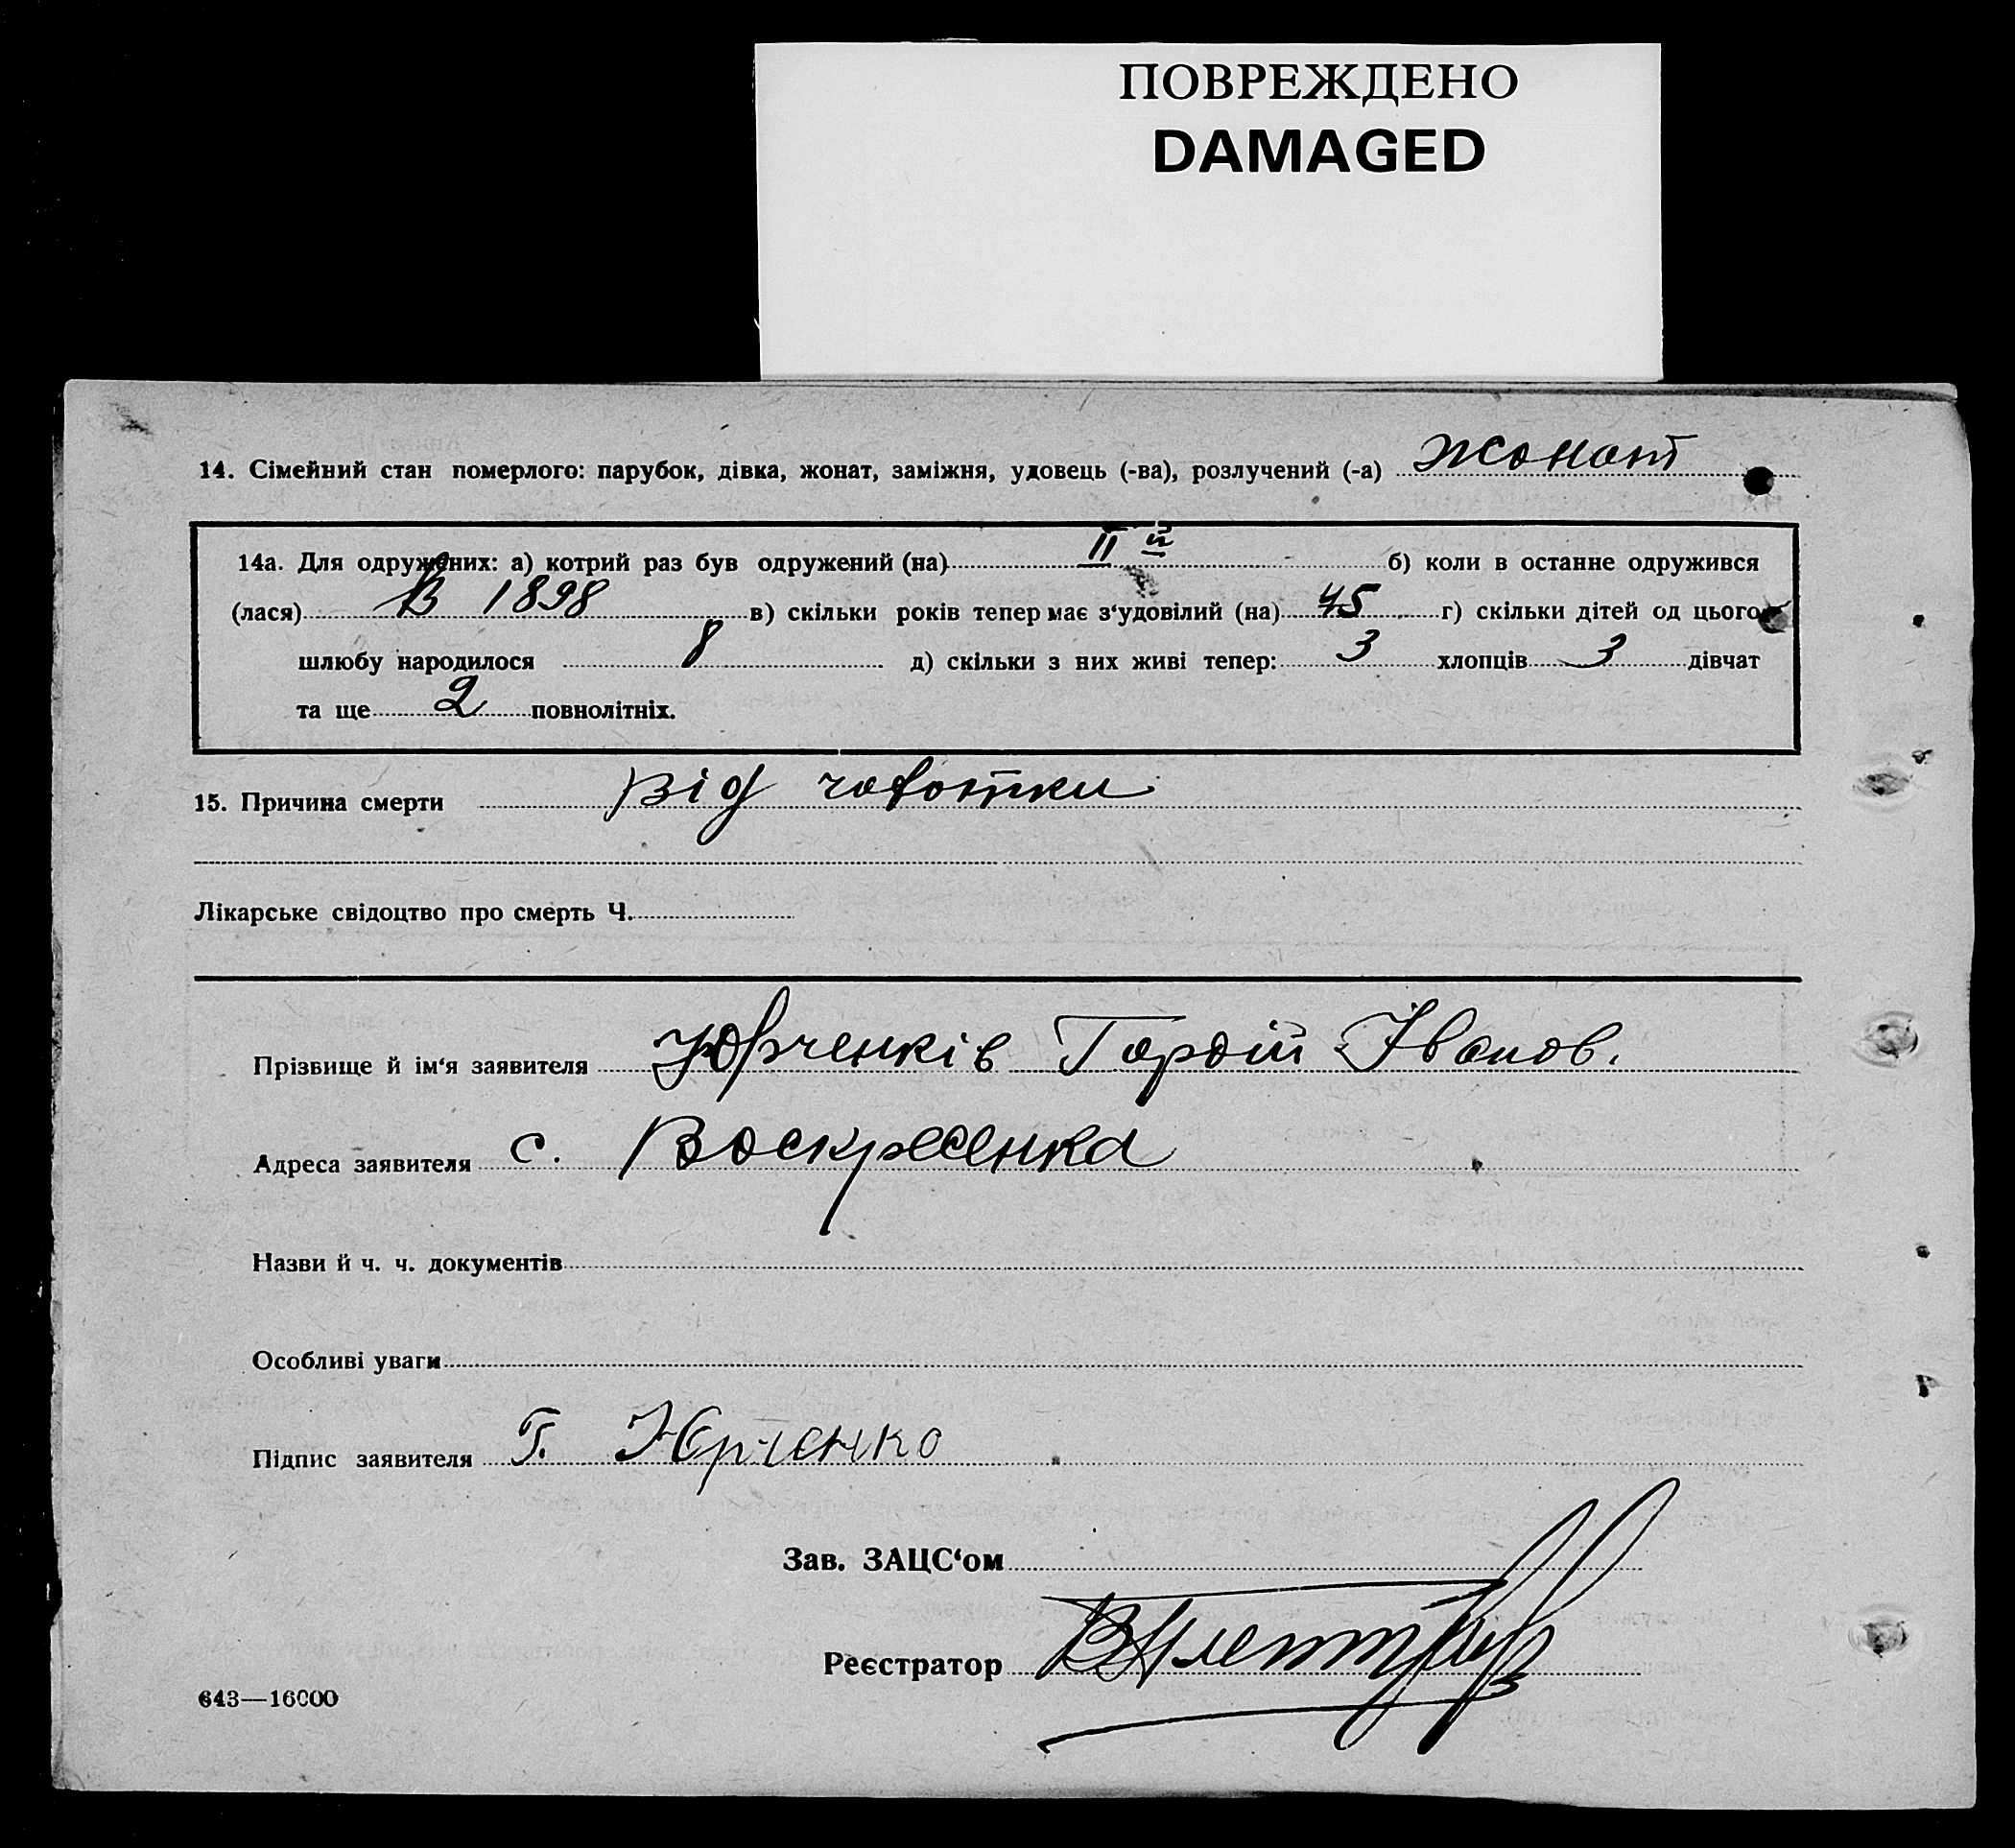 ПОВРЕЖДЕНО
DAMAGED
14. Сімейний стан померлого: парубок, дівка, жонат, заміжня, удовець (-ва), розлучений (-а) жонат
14а. Для одружених: а) котрий раз був одружений (на) II й б) коли в останне одружився
(лася) В 1898 в) скільки років тепер має з‘удовілий (на) 45 г) скільки дітей од цього
шлюбу народилося 8 д) скільки з них живі тепер: 3 хлопців 3 дівчат
та ще 2 повнолітніх.
15. Причина смерти від чахотки
Лікарське свідоцтво про смерть Ч.
Прізвище й ім‘я заявителя Юрченків Гордій Іванов.
Адреса заявителя с. Воскресенка
Назви й ч. ч. документів
Особливі уваги
Підпис заявителя Г. Юрченко
Зав. ЗАЦС‘ом
Реєстратор
643—16000